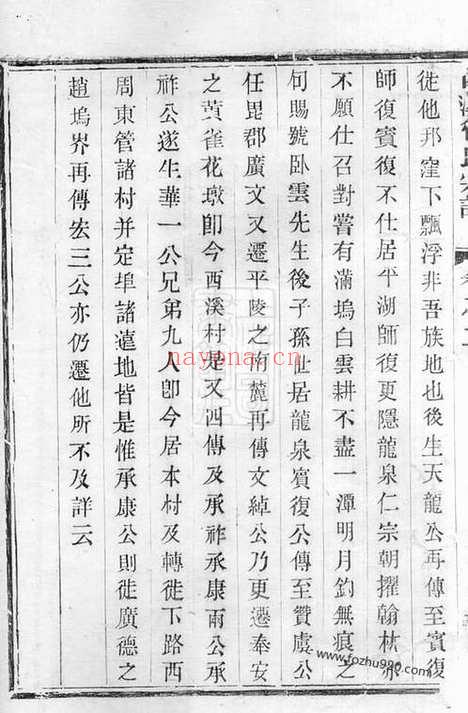 徙他邦窪下飄浮非吾族地也後生天龍公再傳至賓復
師復賓復不仕居平湖師復更隱龍泉仁宗朝擢翰林
不願仕召對嘗有滿塢白雲耕不盡一潭明月釣無痕之
句賜號臥雲先生後子孫世居龍泉賓復公傳至贊虞公
任毘郡廣文又遷平陵之南麓再傳文綽公乃更遷奉安
之黃雀花墩卽今西溪村是又四傳及承祚承康兩公承
祚公遂生華一公兄弟九人卽今居本村及轉徙下路西
周東管諸村并定埠諸蘧地皆是惟承康公則徙廣德之
趙塢界再傳宏三公亦仍遷他所不及詳云
nayona.cn
www.fozhu920.com